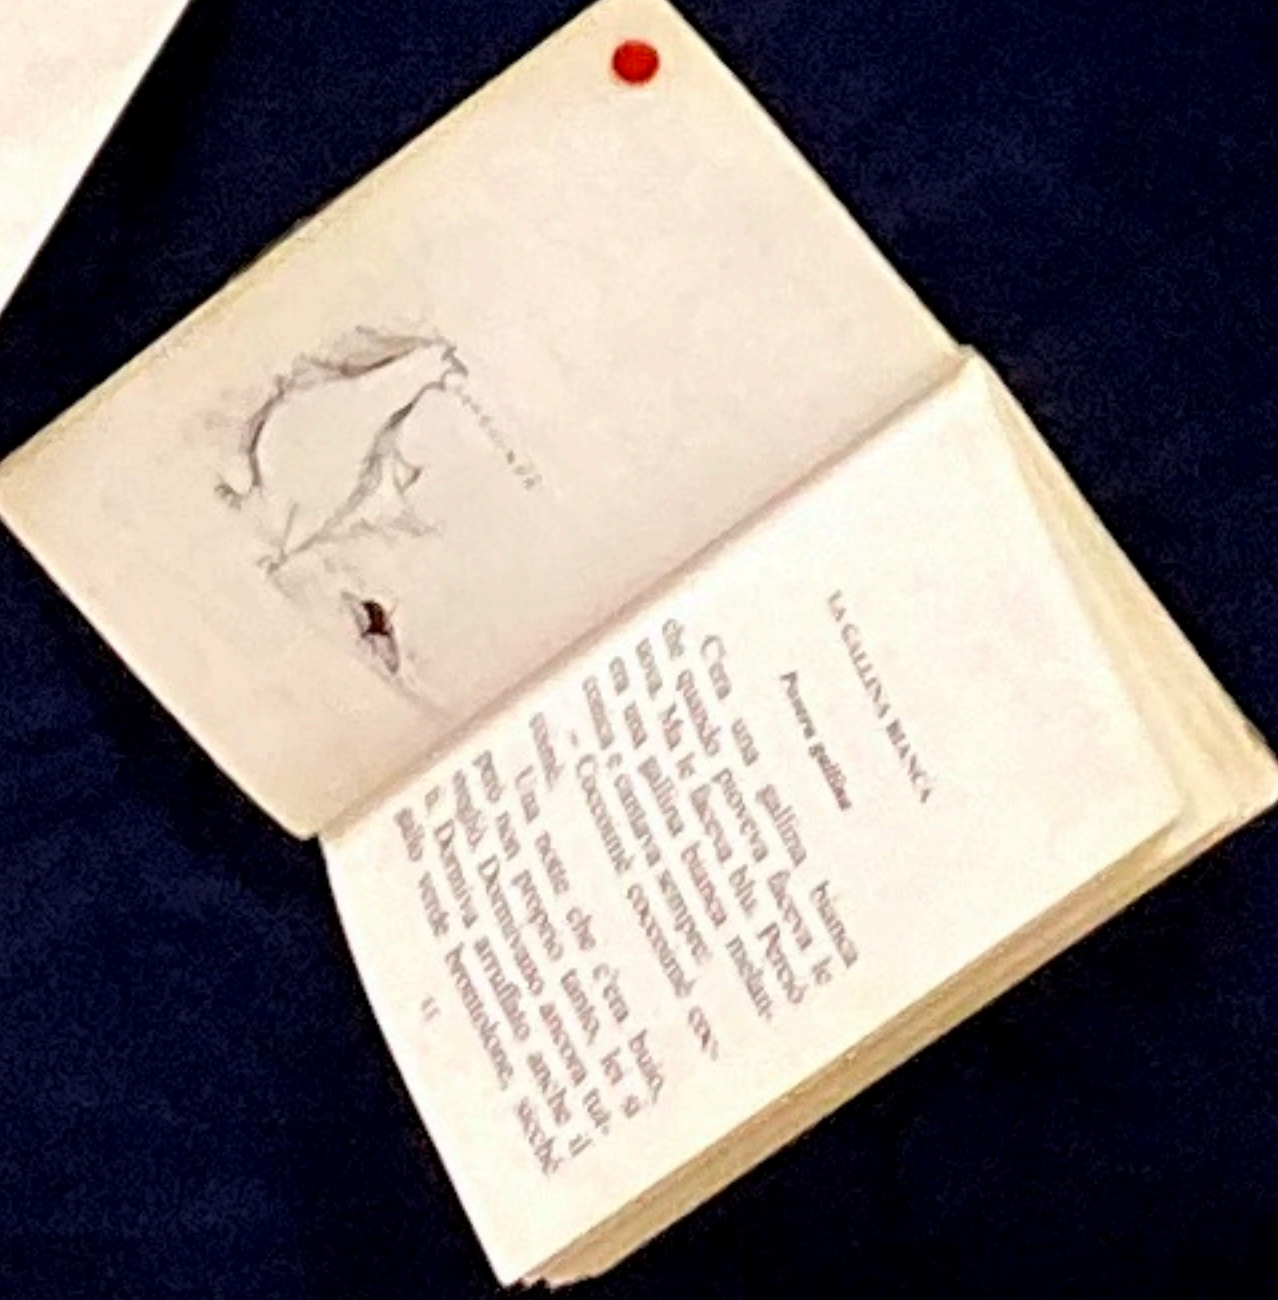 LA GALLINA BIANCA
Povera gallina
C'era una gallina bianca
che quando pioveva faceva le
uova. Ma le faceva blu. Perciò
era una gallina bianca melan-
conica e cantava sempre:
– Coccumé coccumé coc-
cumé.
Una notte che c'era buio,
però non proprio tanto, lei si
svegliò. Dormivano ancora tut-
ti. Dormiva arruffato anche il
gallo verde brontolone, sicché